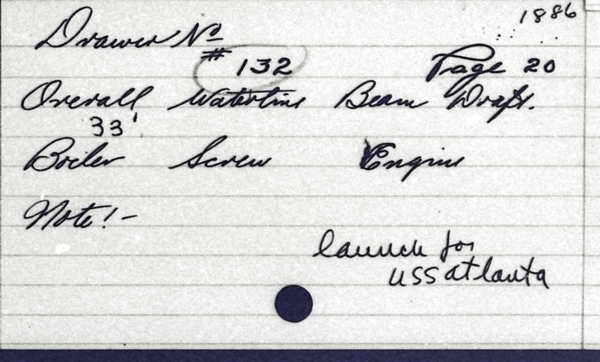 1886
Drawer No
# 132 Page 20
Overall Waterline Beam Draft.
33'
Boiler Screw Engine
Note! -
launch for
USS atlanta